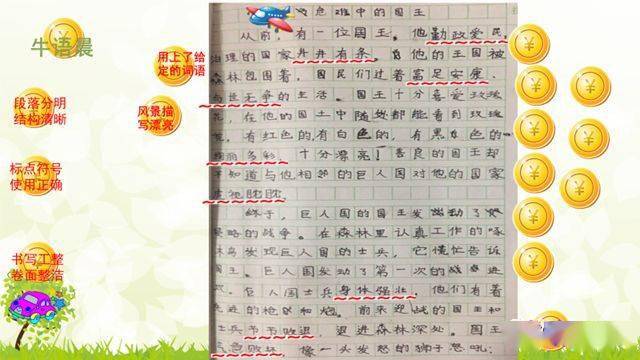 牛语晨
用上了给
定的词语
段落分明
结构清晰
风景描
写漂亮
标点符号
使用正确
书写工整
卷面整洁
危难中的国王
从前，有一位国王。他勤政爱民，
治理的国家井井有条。他的王国被
森林包围着，国民们过着富足安康、
与世无争的生活。国王十分喜爱玫瑰
花，在他的国土中随处都能看到玫瑰
花。有红色的，有白色的，有黑色的，
绚丽多彩，十分漂亮。善良的国王却
不知道与他相邻的巨人国对他的国家
虎视眈眈。
终于，巨人国的国王发动了
侵略的战争。在森林里认真工作的啄
木鸟发现巨人国的士兵，它慌忙告诉
国王。巨人国发动了第一次的战争进
攻。巨人国士兵身体强壮，他们有着
先进的枪和炮。前来迎战的国王和
士兵节节败退，退进森林深处。国王
气急败坏，像一头发怒的狮子怒吼：